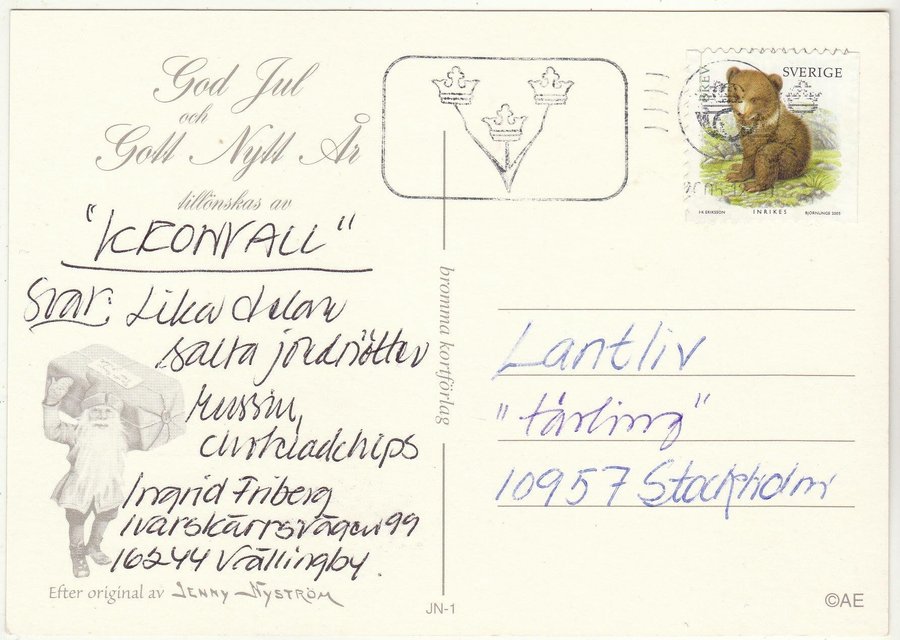 God Jul
och
Gott Nytt År
tillönskas av
"KRONVALL"
Svar: Lika delar
salta jordnötter
russin,
chokladchips
Ingrid Friberg
Ivarskärrsvägen 99
16244 Vällingby.
Efter original av JENNY NYSTRÖM
bromma kortförlag
JN-1
BREV
SVERIGE
INRIKES
BJÖRNUNGE 2005
Lantliv
"tävling"
10957 Stockholm
©AE